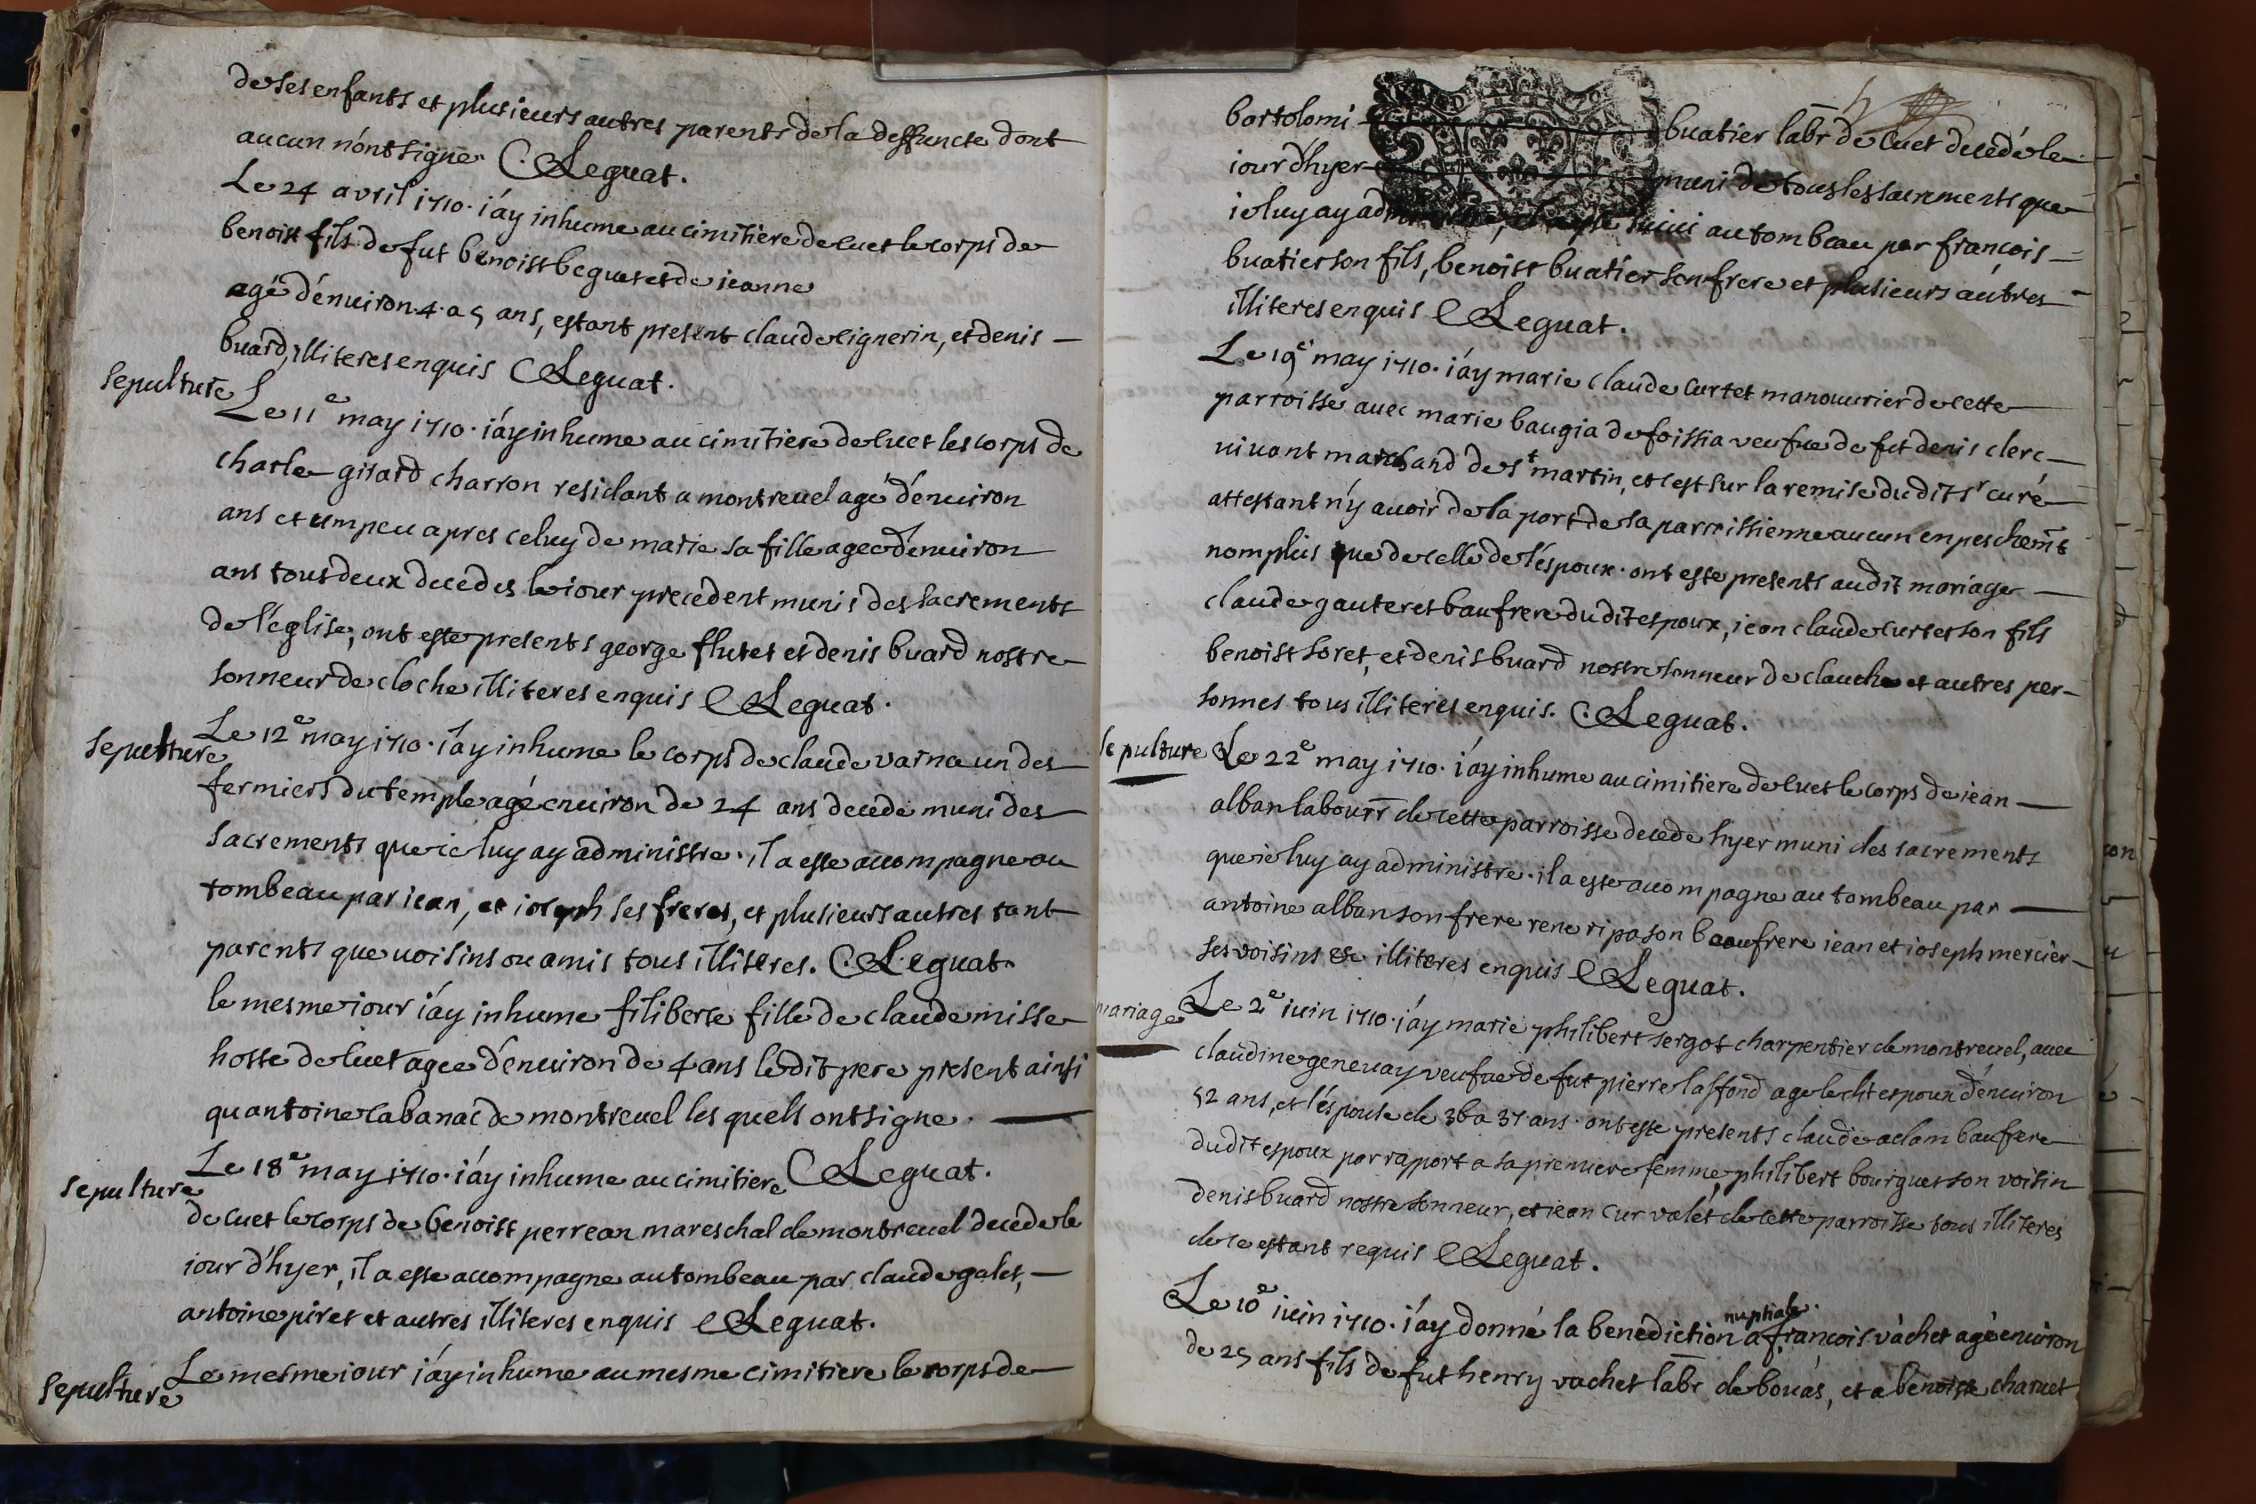 de ses enfants et plusieurs autres parents de la deffuncte dont
aucun n'ont signe. C. Leguat.
Le 24 avril 1710. i'ay inhume au cimitiere de cuet le corps de
benoist fils de fut benoist beguet et de ieanne
agé d'enuiron 4 a 5 ans, estant present claude cignerin, et denis
buard, illiteres enquis C Leguat.
sepulture
Le 11e may 1710. i'ay inhume au cimitiere de cuet les corps de
charle girard charron residant a montreuel agé d'enuiron
ans et un peu apres celuy de marie sa fille agee d'enuiron
ans tous deux decedes le iour precedent munis des sacrements
de l'eglise, ont este presents george flutet et denis buard nostre
sonneur de cloche illiteres enquis C Leguat.
sepulture
Le 12e may 1710. i'ay inhume le corps de claude varna un des
fermiers du temple agé enuiron de 24 ans decede muni des
sacrements que ie luy ay administre. il a este acompagne au
tombeau par iean, et ioseph ses freres, et plusieurs autres tant
parents que uoisins ou amis tous illiteres. C. Leguat.
le mesme iour i'ay inhume filiberte fille de claude misse
hoste de cuet agee d'enuiron de 4 ans ledit pere present ainsi
qu antoine cabanac de montreuel les quels ont signe.
C Leguat.
sepulture
Le 18e may 1710. i'ay inhume au cimitiere
de cuet le corps de benoist perrean mareschal de montreuel decede le
iour d'hyer, il a este accompagne au tombeau par claude galet,
antoine piret et autres illiteres enquis C Leguat.
sepulture
Le mesme iour i'ay inhume au mesme cimitiere le corps de
bartolomi buatier labr de cuet decedé le
iour d'hyer muni de tous les sacrements que
ie luy ay suiui au tombeau par francois
buatier son fils, benoist buatier son frere et plusieurs autres
illiteres enquis C Leguat.
Le 19e may 1710. i'ay marie claude curtet manouurier de cette
parroisse auec marie baugia de foissia veufue de fut denis clerc
uiuant marchand de st martin, et c'est sur la remise dudit sr curé
attestant n'y auoir de la part de sa parroissienne aucun enpeschemt
nomplus que de celle de l'espoux. ont este presents audit mariage
claude gauteret baufrere dudit espoux, iean claude curtet son fils
benoist soret, et denis buard nostre sonneur de clauche et autres per-
sonnes tous illiteres enquis. C. Leguat.
sepulture
Le 22e may 1710. i'ay inhume au cimitiere de cuet le corps de iean
alban labourr de cette parroisse decede hyer muni des sacrements
que ie luy ay administre. il a este acompagne au tombeau par
antoine alban son frere rene ripa son baufrere iean et ioseph mercier
ses voisins &c. illiteres enquis C Leguat.
mariage
Le 2e iuin 1710. i'ay marie philibert sergot charpentier de montreuel, auec
claudine geneuay veufue de fut pierre laffond age ledit espoux d'enuiron
52 ans, et l'espouse de 36 a 37 ans. ont este presents claude adam baufrere
dudit espoux par rapport a sa premiere femme philibert bourguet son voisin
denis buard nostre sonneur, et iean cur valet de cette parroisse tous illiteres
de ce estant requis C Leguat.
Le 10e iuin 1710. i'ay donné la benediction nuptiale. a francois vachet agé enuiron
de 25 ans fils de fut henry vachet labr de bouas, et a benoiste charuet